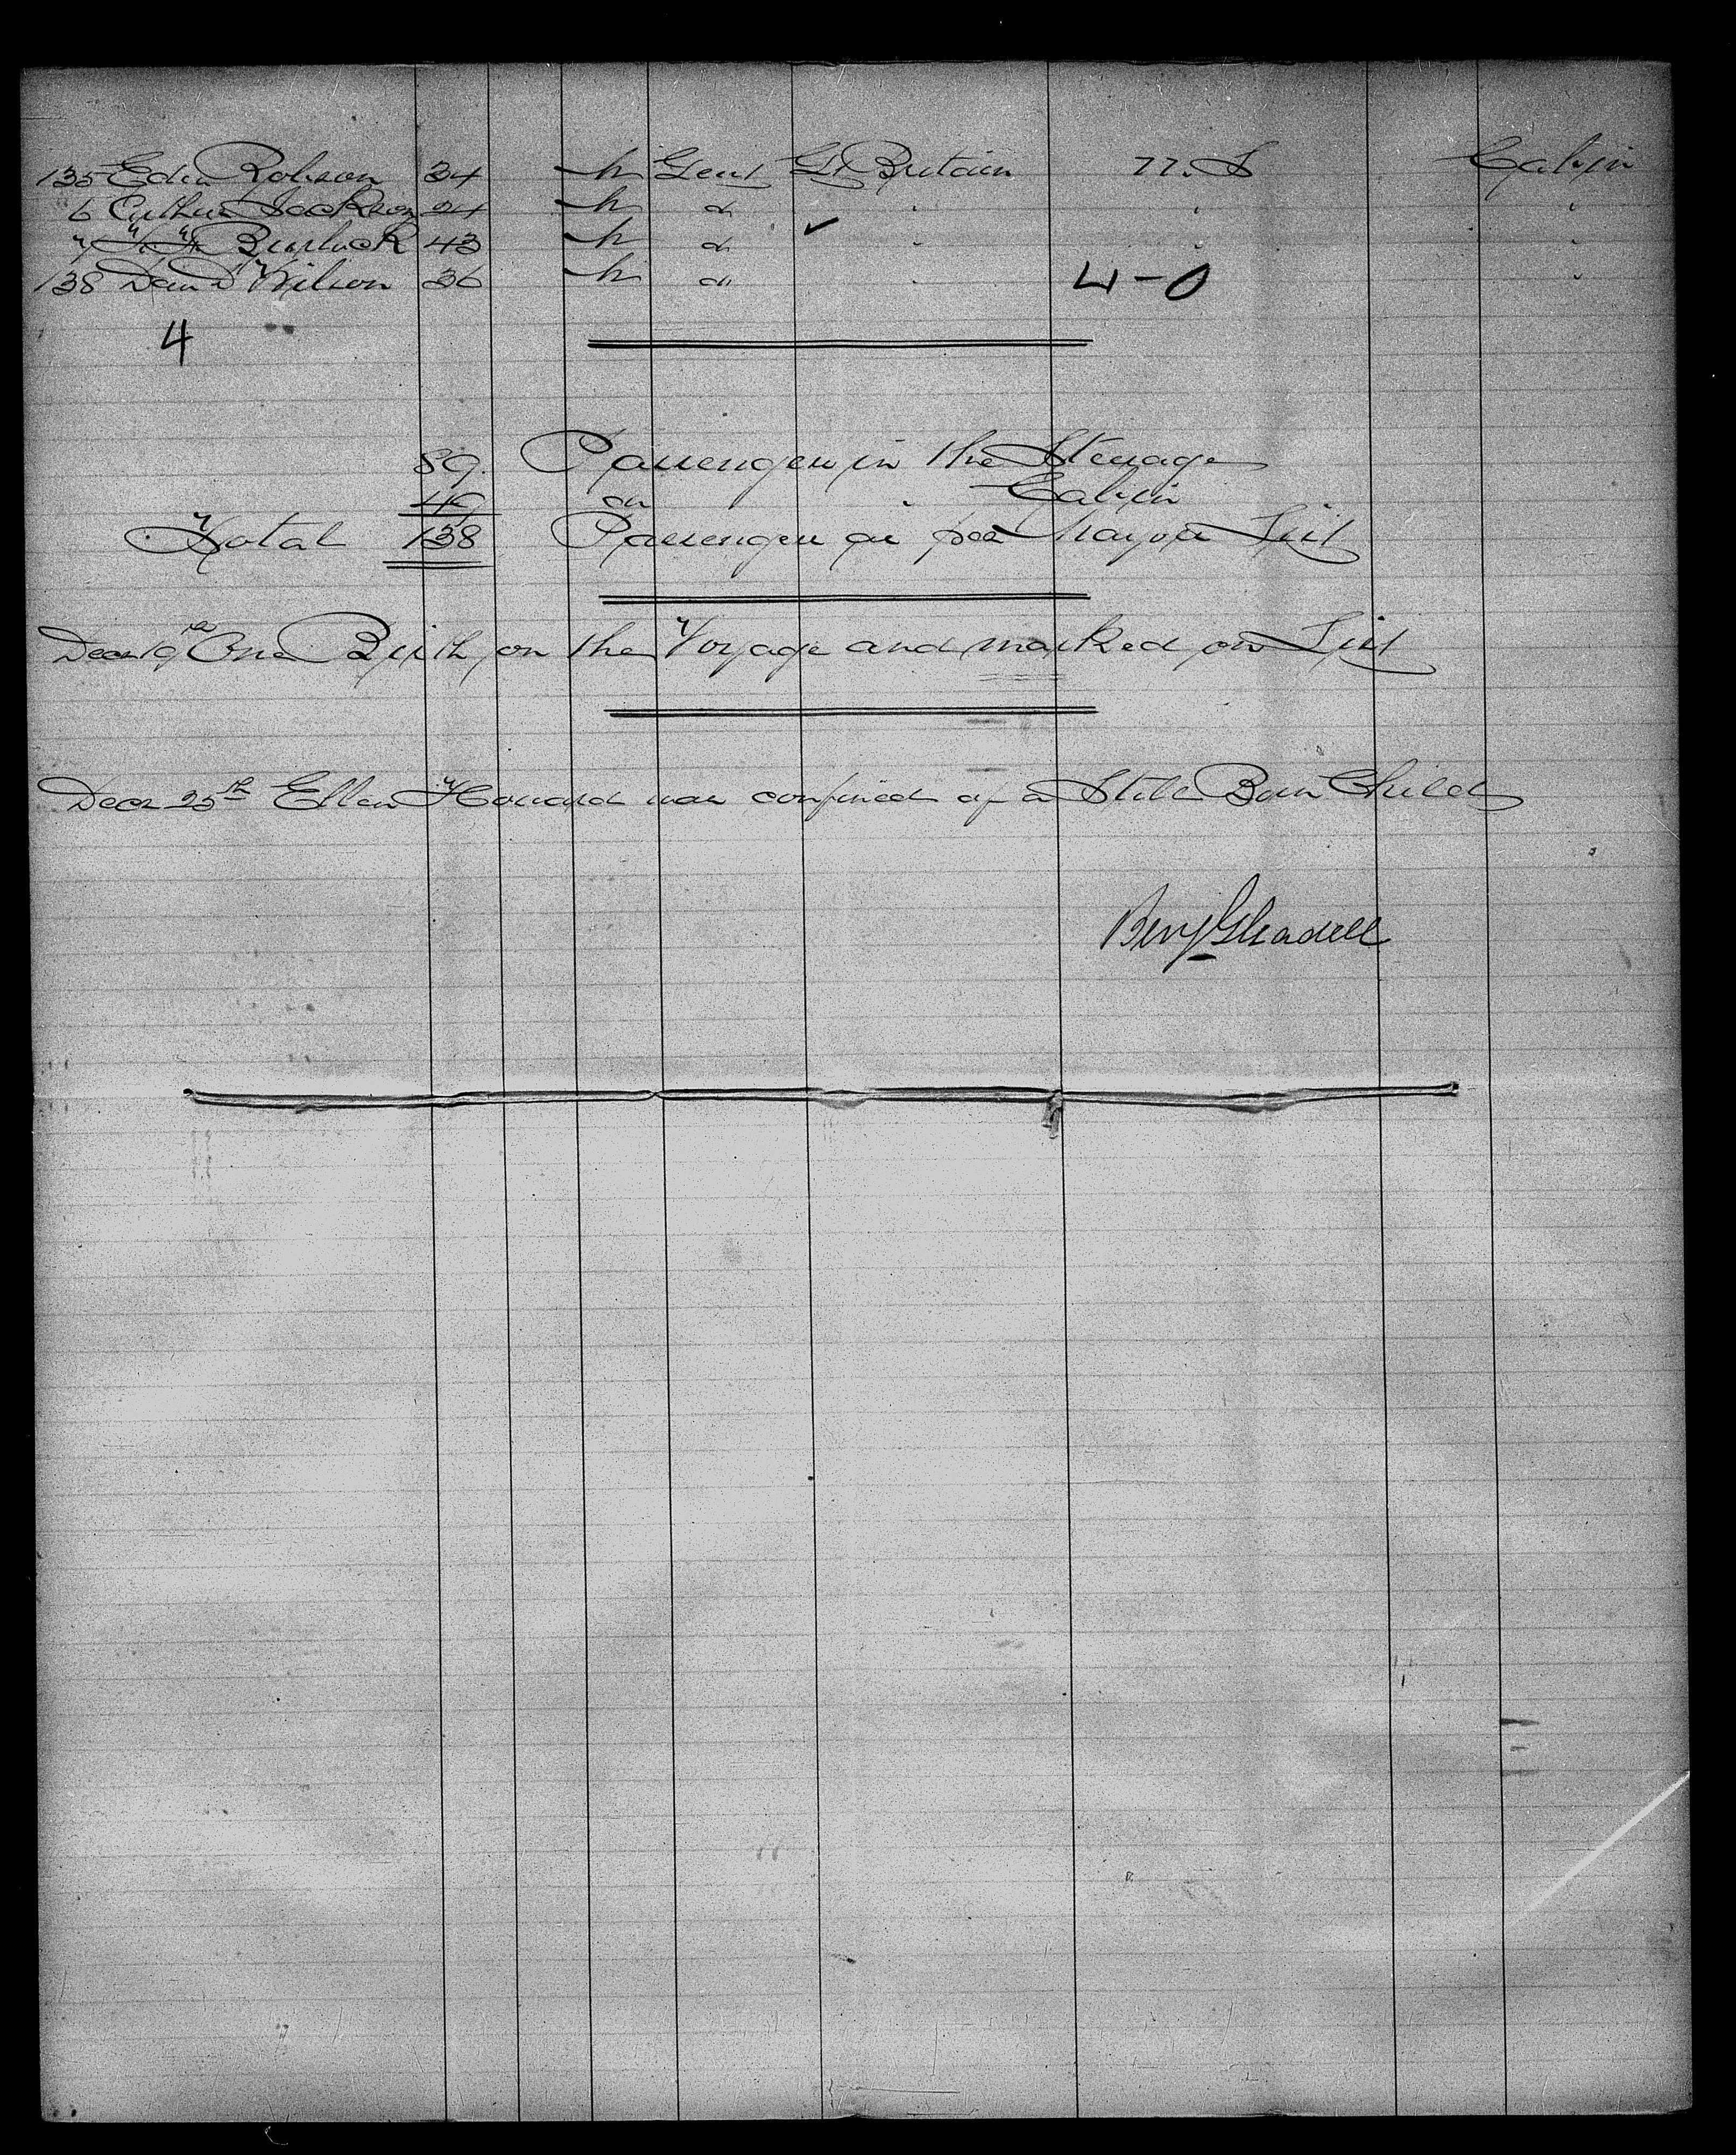 135 Eden Robson 34 m Gent Gt Britain U. S Cabin
6 Arthur Jackson 24 m do " " "
7 43 m do ✓ " " "
138 David Wilson 36 m do " 4-0 "
4
89. Passengers in the Steerage
49 do " Cabin
Total 138 Passengers as per List
Decr 19th One Birth on the Voyage and marked on List
Decr 25th Ellen Howard was confined of a Still Born Child
Benj Gleadell